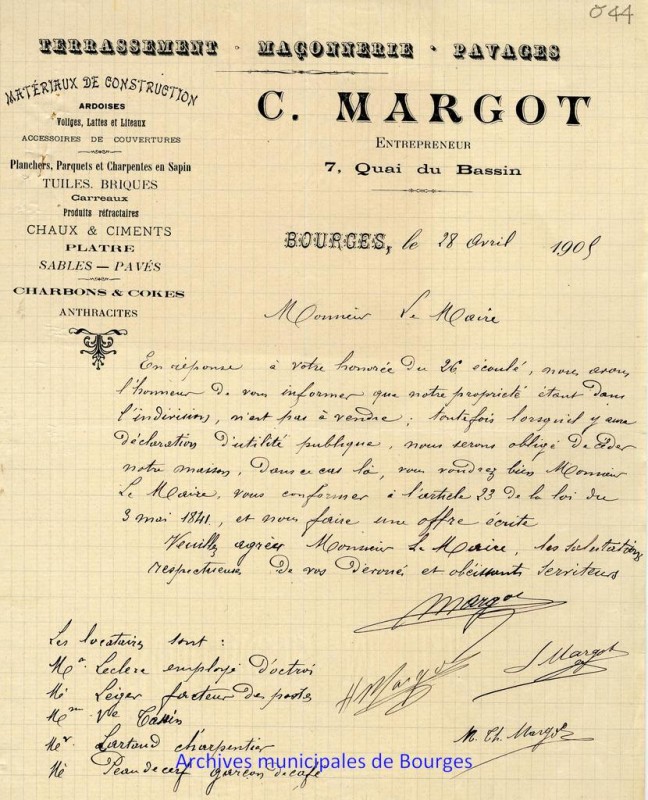 044
TERRASSEMENT · MAÇONNERIE · PAVAGES
MATÉRIAUX DE CONSTRUCTION
ARDOISES
Voliges, Lattes et Liteaux
ACCESSOIRES DE COUVERTURES
Planchers, Parquets et Charpentes en Sapin
TUILES. BRIQUES
Carreaux
Produits réfractaires
CHAUX & CIMENTS
PLATRE
SABLES — PAVÉS
CHARBONS & COKES
ANTHRACITES
C. MARGOT
ENTREPRENEUR
7, Quai du Bassin
BOURGES, le 28 Avril 1905
Monsieur Le Maire
En réponse à votre honorée du 26 écoulé, nous avons
l'honneur de vous informer que notre propriété étant dans
l'indivision, n'est pas à vendre; toutefois lorsqu'il y aura
déclaration d'utilité publique, nous serons obligé de céder
notre maison, Dans ce cas là, vous voudrez bien Monsieur
Le Maire, vous conformer à l'article 23 de la loi du
3 mai 1841, et nous faire une offre écrite
Veuillez agréer Monsieur Le Maire, les salutations
respectueuses de vos dévoués et obéissants serviteurs
Margot
Les locataires sont :
Mr Leclerc employé d'octroi
Mr Léiger facteur des postes
Mme Vve
Mr Lartaud charpentier
Mr Peaudecerf garçon de café
H Margot
J Margot
M. Th. Margot
Archives municipales de Bourges